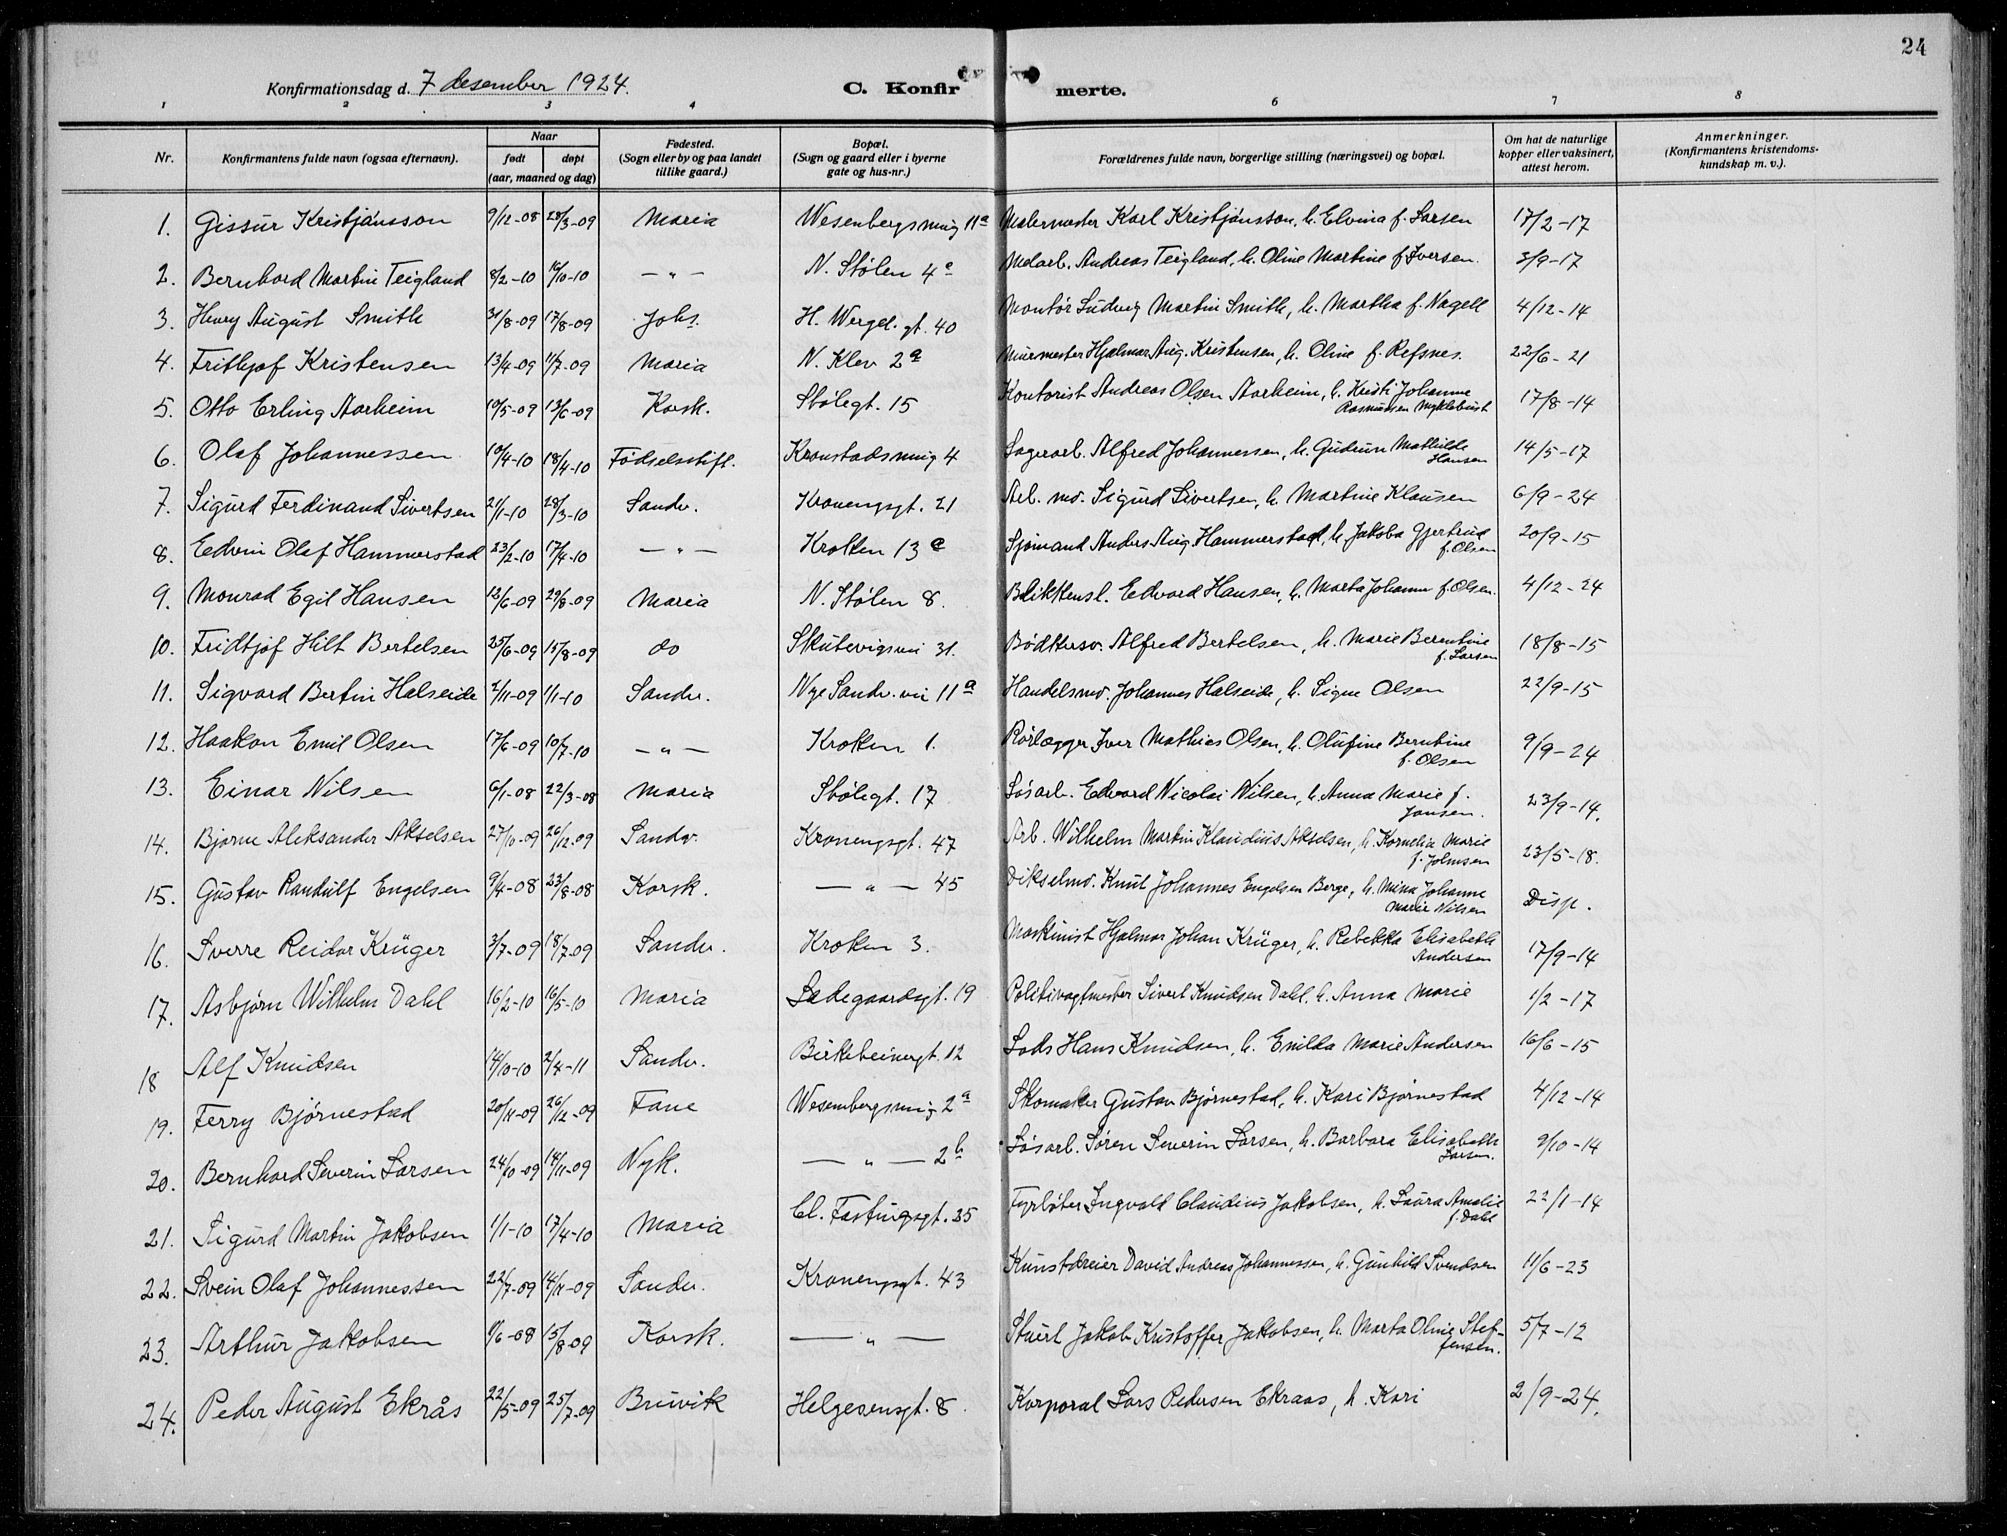 24
Konfirmationsdag d. 7 desember 1924.
C. Konfirmerte.
1 2 3 4 6 7 8
Nr. | Konfirmantens fulde navn (ogsaa efternavn). | Naar født døpt (aar, maaned og dag) | Fødested. (Sogn eller by og paa landet tillike gaard.) | Bopæl. (Sogn og gaard eller i byerne gate og hus-nr.) | Forældrenes fulde navn, borgerlige stilling (næringsvei) og bopæl. | Om hat de naturlige kopper eller vaksinert, attest herom. | Anmerkninger. (Konfirmantens kristendoms-kundskap m. v.).
1. Gissur Kristjánsson 9/12-08 28/3-09 Maria Wesenbergsmug 11a Malermester Karl Kristjánsson, h. Elvina f. Larsen 17/2-17
2. Bernhard Martin Teigland 8/2-10 16/10-10 —„— N. Stølen 4 Andreas Teigland, h. Oline Martine f Iversen. 3/9-17
3. Henry August Smith 31/8-09 17/8-09 Johs. H. Wergel. gt. 40 Montør Ludvig Martin Smith, h. Martha f. Nagell 4/12-14
4. Frithjof Kristensen 13/4-09 11/7-09 Maria N. Klev 2a Murmester Hjalmar Aug. Kristensen, h. Oline f. Refsnes. 22/6-21
5. Otto Erling Aarheim 10/5-09 13/6-09 Korsk. Stølegt. 15 Kontorist Andreas Olsen Aarheim, h. Kristi Johanne
Rasmussen Myklebust 17/8-14
6. Olaf Johannessen 10/4-10 18/4-10 Fødselsstift. Kronstadsmug 4 Lagerarb. Alfred Johannessen, h. Gudrun Mathilde
Hansen 14/5-17
7. Sigurd Ferdinand Sivertsen 21/1-10 28/3-10 Sandv. Kronengsgt. 21 Arb. md. Sigurd Sivertsen, h. Martine Klausen 6/9-24
8. Edvin Olaf Hammerstad 23/2-10 17/4-10 —„— Kroken 13 Sjømand Anders Aug. Hammerstad, h. Jakoba Gjertrud
f. Olsen 20/9-15
9. Monrad Egil Hansen 12/6-09 29/8-09 Maria N. Stølen 8. Blikkensl. Edvard Hansen, h. Marta Johanne f. Olsen. 4/12-24
10. Fridtjof Hilt Bertelsen 25/6-09 15/8-09 do Skutevigsvei 31. Bødkersv. Alfred Bertelsen, h. Marie Berentine
f. Larsen 18/8-15
11. Sigvard Bertin Halseide 2/11-09 1/1-10 Sandv. Nye Sandv. vei 11a Handelsmd. Johannes Halseide, h. Signe Olsen 22/9-15
12. Haakon Emil Olsen 17/6-09 10/7-10 —„— Kroken 1. Rørlægger Iver Mathias Olsen, h. Olufine Berntine
f. Olsen 9/9-24
13. Einar Nilsen 6/1-08 22/3-08 Maria Stølegt. 17 Løsarb. Edvard Nicolai Nilsen, h. Anna Marie f.
Jansen. 23/9-14.
14. Bjarne Aleksander Akselsen 27/10-09 26/12-09 Sandv. Kronengsgt. 47 Arb. Wilhelm Martin Klaudius Akselsen, h. Kornelia Marie
f. Johnsen 23/5-18.
15. Gustav Randulf Engelsen 9/4-08 23/8-08 Korsk. —„— 45 Knut Johannes Engelsen Berge, h. Mina Johanne
Marie Nilsen Disp.
16. Sverre Reidar Krüger 3/7-09 18/7-09 Sandv. Kroken 3. Maskinist Hjalmar Johan Krüger, h. Rebekka Elisabeth
Andersen 17/9-14
17. Asbjørn Wilhelm Dahl 16/2-10 16/5-10 Maria Ladegaardsgt. 19 Politivagtmester Sivert Knudsen Dahl, h. Anna Marie 1/2-17
18 Alf Knudsen 14/10-10 2/4-11 Sandv. Birkebeinergt. 12 Lods Hans Knudsen, h. Enilda Marie Andersen 16/6-15
19. Ferry Bjørnestad 20/11-09 26/12-09 Fane Wesembergsmug 2a Skomaker Gustav Bjørnestad, h. Kari Bjørnestad 4/12-14
20. Bernhard Severin Larsen 24/10-09 14/11-09 Nyk. —„— 2b Løsarb. Søren Severin Larsen, h. Barbara Elisabeth
Larsen. 9/10-14
21. Sigurd Martin Jakobsen 1/1-10 17/4-10 Maria Cl. Fastingsgt. 25 Fyrbøter Ingvald Claudius Jakobsen, h. Laura Amalie
f. Dahl 22/1-14
22. Svein Olaf Johannessen 22/7-09 14/11-09 Sandv. Kronengsgt. 43 Kunstdreier David Andreas Johannessen, h. Gunhild Svendsen 11/6-23
23. Arthur Jakobsen 1/6-08 15/8-09 Korsk. —„— Stuert Jakob Kristoffer Jakobsen, h. Marta Oline Stef-
fensen. 5/7-12
24. Peder August Ekrås 22/5-09 25/7-09 Bruvik Helgesensgt. 8. Korporal Lars Pedersen Ekraas, h. Kari 2/9-24.